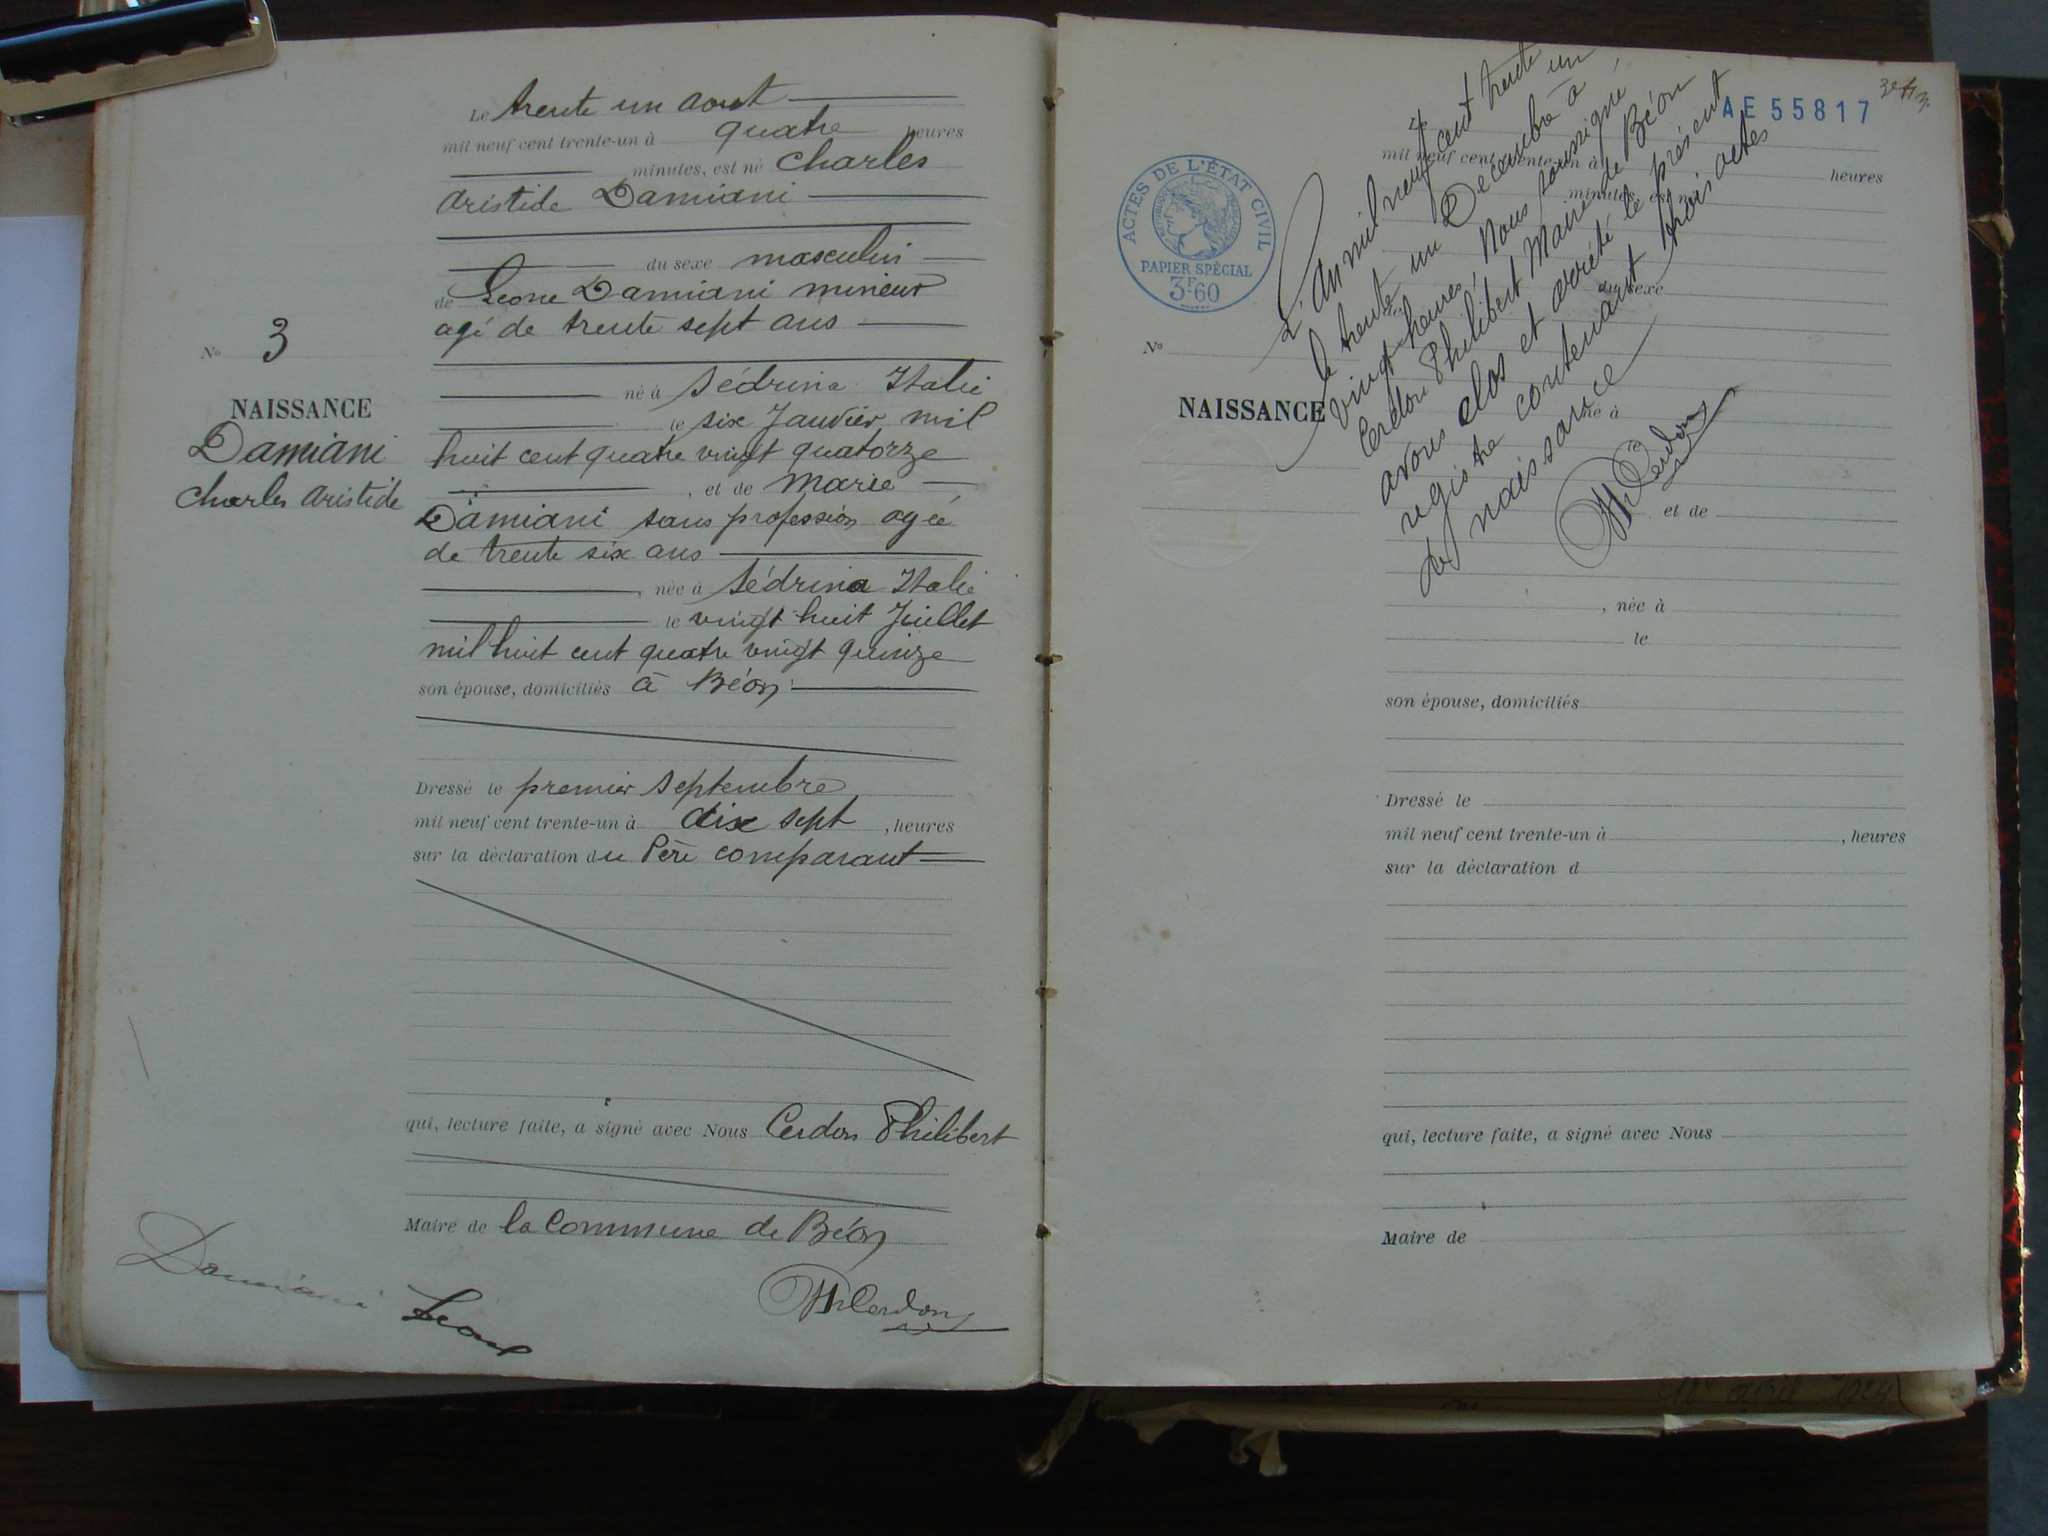 Le trente un aout
mil neuf cent trente-un à quatre heures
minutes, est né Charles
Aristide Damiani
du sexe masculin
de Leone Damiani mineur
agé de trente sept ans
né à Sédrina Italie
le six Janvier mil
huit cent quatre vingt quatorze
, et de Marie
Damiani sans profession agée
de trente six ans
, née à Sédrina Italie
le vingt huit Juillet
mil huit cent quatre vingt quinze
son épouse, domiciliés à Béon
Dressé le premier Septembre
mil neuf cent trente-un à dix sept , heures
sur la déclaration du Père comparant
qui, lecture faite, a signé avec Nous Cerdon Philibert
Maire de la Commune de Béon
Damiani Leone
PhCerdon
No 3
NAISSANCE
Damiani
Charles Aristide
AE55817
ACTES DE L'ÉTAT CIVIL
PAPIER SPÉCIAL
3F60
L'An mil neuf cent trente un
le trente un Décembre à
vingt heures, Nous soussigné,
Cerdon Philibert Maire de Béon
avons clos et arrêté le présent
registre contenant trois actes
de naissance
PhCerdon
mil neuf cent trente-un à heures
minutes, est né
du sexe
de
No
NAISSANCE
né à
le
et de
, née à
le
son épouse, domiciliés
Dressé le
mil neuf cent trente-un à , heures
sur la déclaration d
qui, lecture faite, a signé avec Nous
Maire de
avril